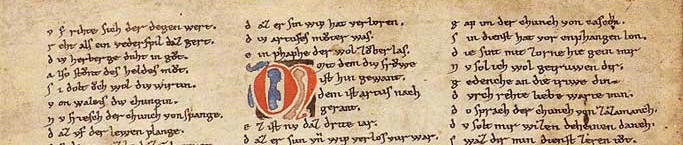 v f rihte sich der degen wert.
r eht als ein vederspil daz gert.
d iv herberge duht in gǒt.
a lso stǒnt des heldes mǒt.
s i doht ǒch wol div wirtin.
v on waleis div chungin.
n v friesch der chunich von spange.
d az vf der lewen plange.
d az er sin wip hat verloren.
d iv artuses mǒter was.
e in phaphe der wol
onte dem div frǒwe
ist hin gewant.
dem ist artus nach
gerant.
e z ist nv daz dritte iar.
d az er sun vñ wip verlos fur war.
g ap im der chunich von
s in dienst hat vor enphangen lon.
d ie sint mit zorne hie gein mir
n v sol ich wol getruwen dir.
g edenche an die triwe din
d vrch rehte liebe warte min.
d o sprach der chunch von zazamanch.
d v solt mir wizen deheinen danch.
s waz dir min dienst